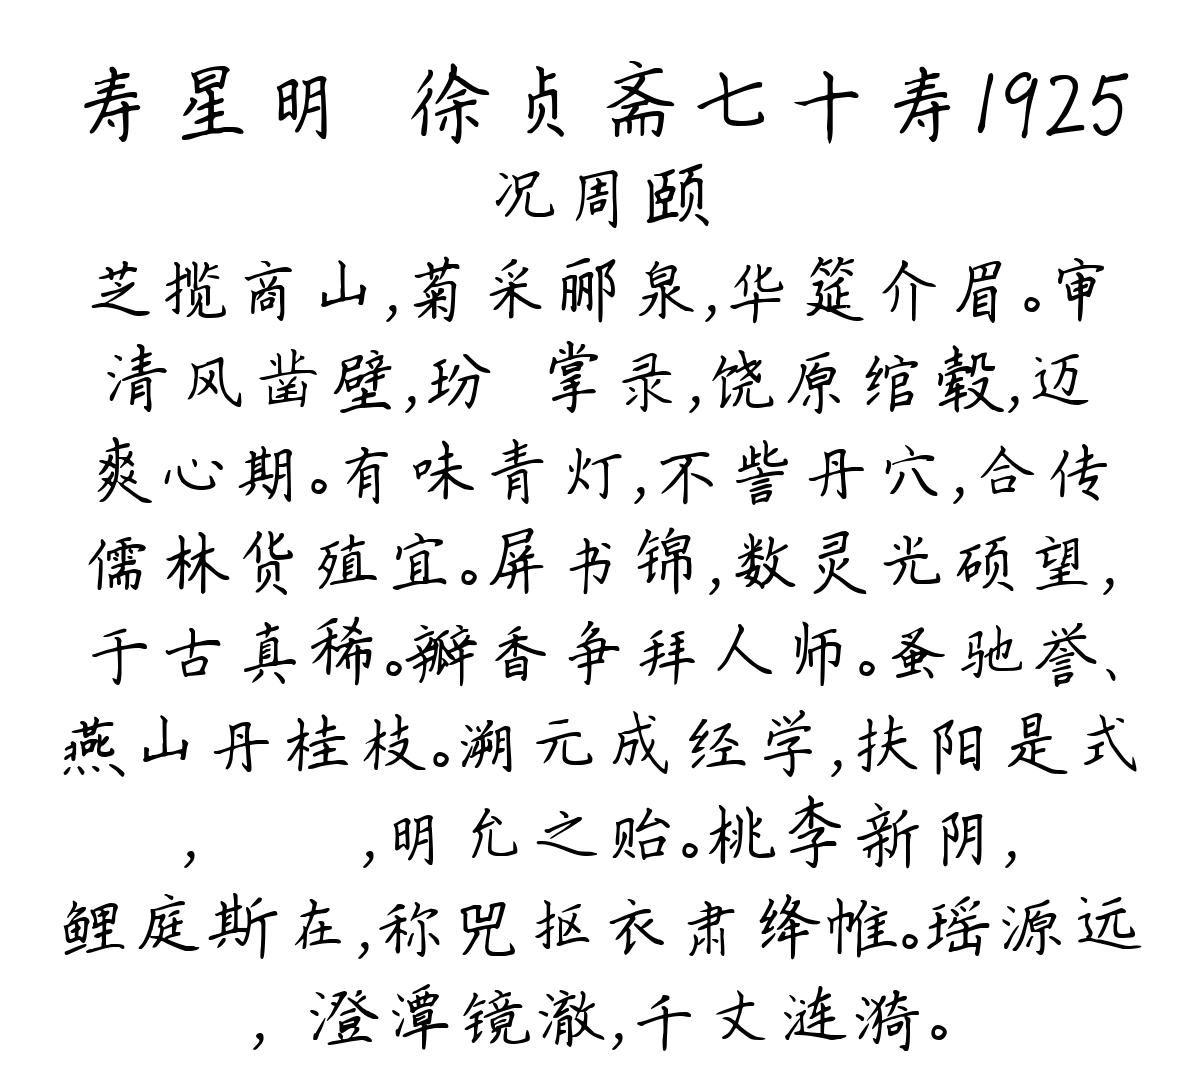 寿星明 徐贞斋七十寿1925
况周颐
芝揽商山,菊采郦泉,华筵介眉。审
清风凿壁,玢 掌录,饶原绾毂,迈
爽心期。有味青灯,不訾丹穴,合传
儒林货殖宜。屏书锦,数灵光硕望,
于古真稀。瓣香争拜人师。蚤驰誉、
燕山丹桂枝。溯元成经学,扶阳是式
, ,明允之贻。桃李新阴,
鲤庭斯在,称兕抠衣肃绛帷。瑶源远
, 澄潭镜澈,千丈涟漪。